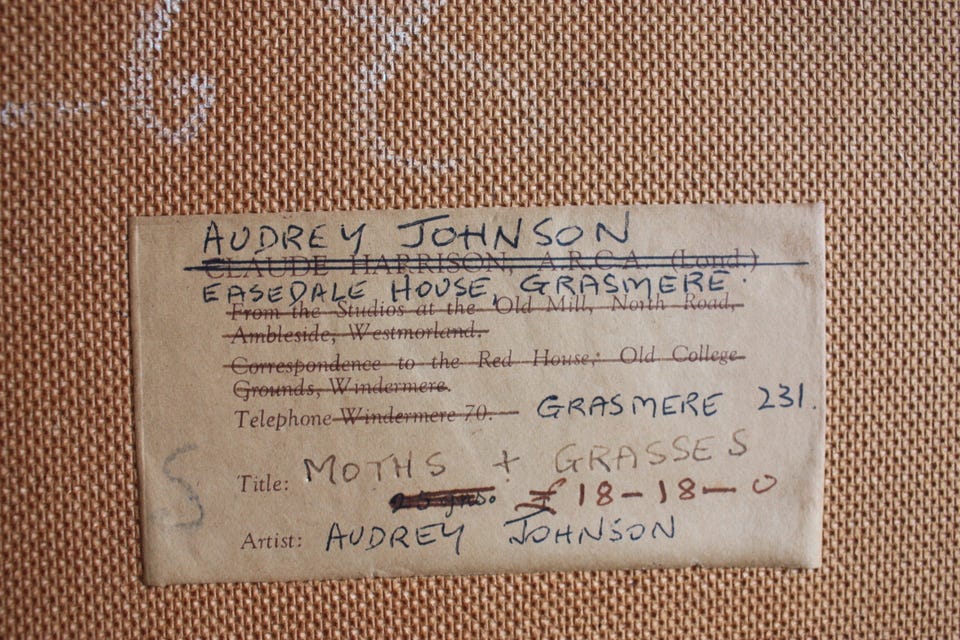 AUDREY JOHNSON
CLAUDE HARRISON, A.R.C.A. (Lond.)
EASEDALE HOUSE, GRASMERE.
From the Studios at the Old Mill, North Road,
Ambleside, Westmorland.
Correspondence to the Red House, Old College
Grounds, Windermere.
Telephone Windermere 70. GRASMERE 231.
Title: MOTHS + GRASSES
25 gns. £18-18-0
Artist: AUDREY JOHNSON
S